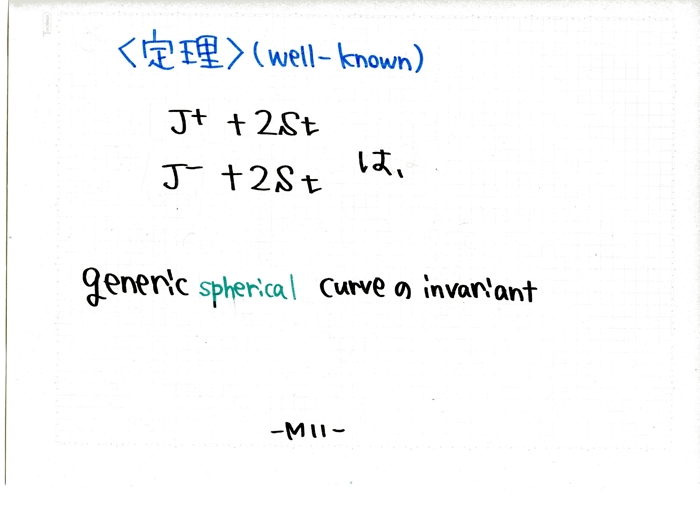 <定理>(well-known)
J⁺ + 2St
J⁻ + 2St は、
generic spherical curve の invariant
-M11-